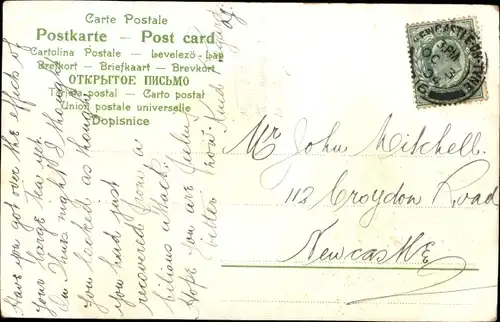 Carte Postale
Postkarte — Post card
Cartolina Postale — Levelezö-Lap
Brefkort — Briefkaart — Brevkort
ОТКРЫТОЕ ПИСЬМО
Tarjeta postal — Carto postal
Union postale universelle
Dopisnice
NEWCASTLE ON TYNE
Mr. John Mitchell.
112 Croydon Road
Newcastle
Have you got over the effect of
your large tea yet.
On Thurs night I thought
you looked as though
you had just
recovered from a
bilious attack.
Hope you are feeling
better now. Kind